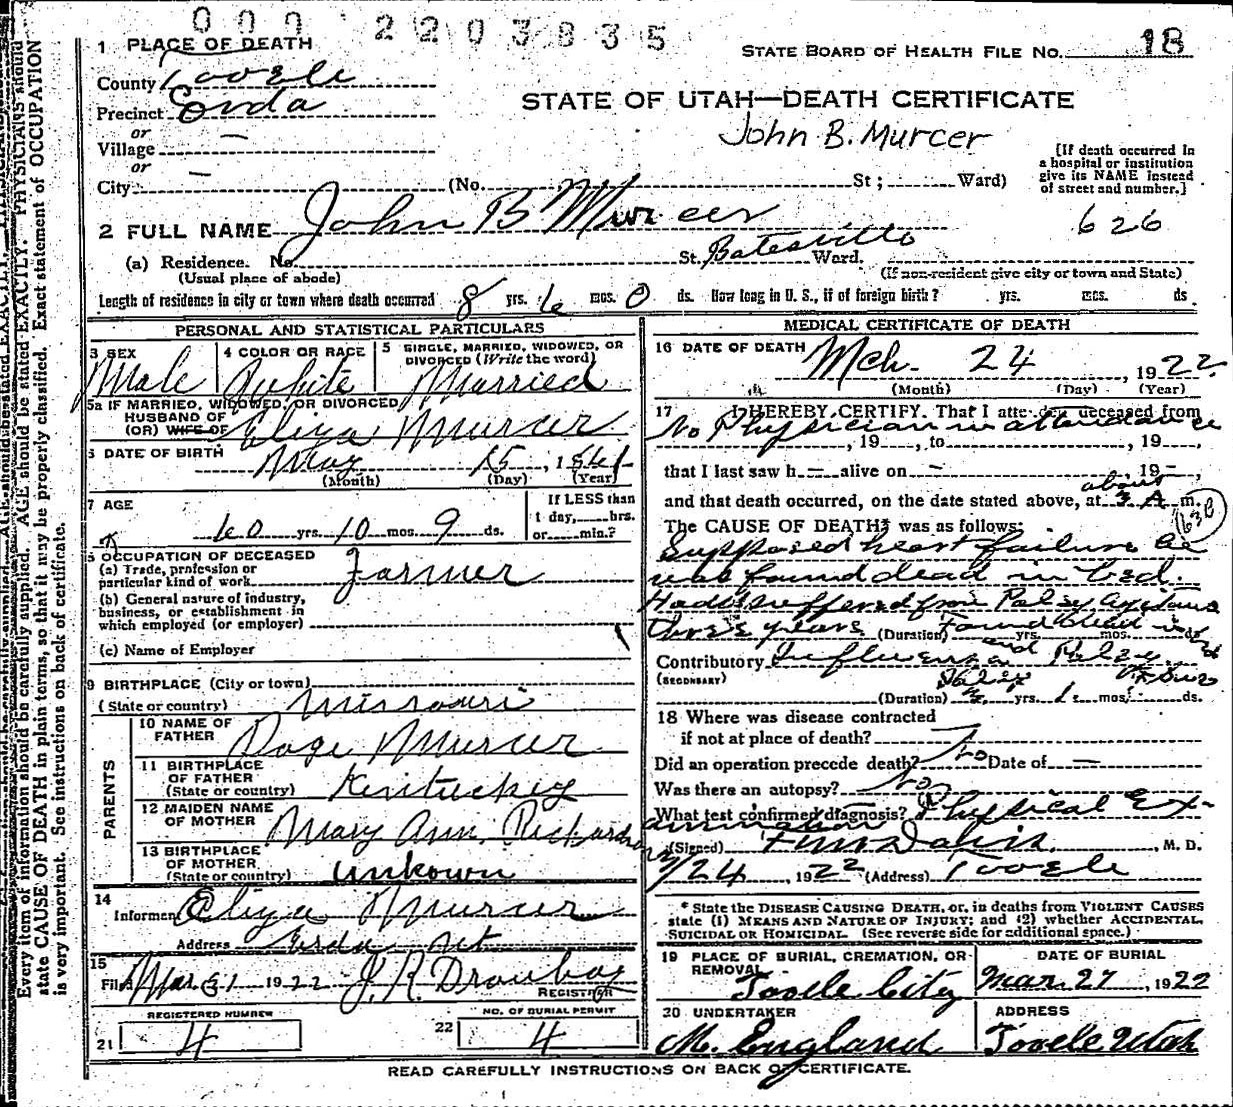 000 2203835
1 PLACE OF DEATH
STATE BOARD OF HEALTH FILE NO. 18
County Tooele
Precinct Erda
STATE OF UTAH—DEATH CERTIFICATE
or
John B. Murcer
Village —
or
City — (No. St ; Ward)
[If death occurred in
a hospital or institution
give its NAME instead
of street and number.]
2 FULL NAME John B Murcer
626
(a) Residence. No. St. Batesville Ward.
(Usual place of abode) (If non-resident give city or town and State)
Length of residence in city or town where death occurred 8 yrs. 6 mos. 0 ds. How long in U. S., if of foreign birth? yrs. mos. ds
PERSONAL AND STATISTICAL PARTICULARS
3 SEX
Male
4 COLOR OR RACE
White
5 SINGLE, MARRIED, WIDOWED, OR
DIVORCED (Write the word)
Married
5a IF MARRIED, WIDOWED, OR DIVORCED
HUSBAND OF
(OR) WIFE OF Eliza Murcer
6 DATE OF BIRTH
May 15, 1861
(Month) (Day) (Year)
7 AGE
60 yrs. 10 mos. 9 ds.
If LESS than
1 day, hrs.
or min.?
OCCUPATION OF DECEASED
(a) Trade, profession or
particular kind of work Farmer
(b) General nature of industry,
business, or establishment in
which employed (or employer)
(c) Name of Employer
9 BIRTHPLACE (City or town)
(State or country) Missouri
PARENTS
10 NAME OF
FATHER Doge Murcer
11 BIRTHPLACE
OF FATHER
(State or country) Kentuckey
12 MAIDEN NAME
OF MOTHER Mary Ann Richardson
13 BIRTHPLACE
OF MOTHER
(State or country) Unkown
14
Informent Eliza Murcer
Address Erda Ut
15
Filed Mar 31 1922 J. R. Droubay
REGISTRAR
REGISTERED NUMBER
21 4
NO. OF BURIAL PERMIT
22 4
MEDICAL CERTIFICATE OF DEATH
16 DATE OF DEATH
Mch. 24, 1922
(Month) (Day) (Year)
17 I HEREBY CERTIFY. That I attended deceased from
No Physician in attendance
, 19 , to , 19 ,
that I last saw h — alive on — , 19 – ,
and that death occurred, on the date stated above, at about 3 A. m.
The CAUSE OF DEATH* was as follows:
63B
Supposed heart failure he
was found dead in bed.
Had suffered from Palsy
three years (Duration) Found dead in bed yrs. mos. ds
Contributory Influenza and Palsy
(SECONDARY)
(Duration) yrs. mos. ds.
18 Where was disease contracted
if not at place of death?
Did an operation precede death? No Date of —
Was there an autopsy? No
What test confirmed diagnosis? Physical Ex-
amination
(Signed) Davis, M. D.
3/24, 1922 (Address) Tooele
* State the DISEASE CAUSING DEATH, or, in deaths from VIOLENT CAUSES
state (1) MEANS AND NATURE OF INJURY; and (2) whether ACCIDENTAL,
SUICIDAL OR HOMICIDAL. (See reverse side for additional space.)
19 PLACE OF BURIAL, CREMATION, OR
REMOVAL
Tooele City
DATE OF BURIAL
Mar. 27, 1922
20 UNDERTAKER
M. England
ADDRESS
Tooele Utah
READ CAREFULLY INSTRUCTIONS ON BACK OF CERTIFICATE.
Every item of information should be carefully supplied. AGE should be stated EXACTLY. PHYSICIANS should
state CAUSE OF DEATH in plain terms, so that it may be properly classified. Exact statement of OCCUPATION
is very important. See instructions on back of certificate.